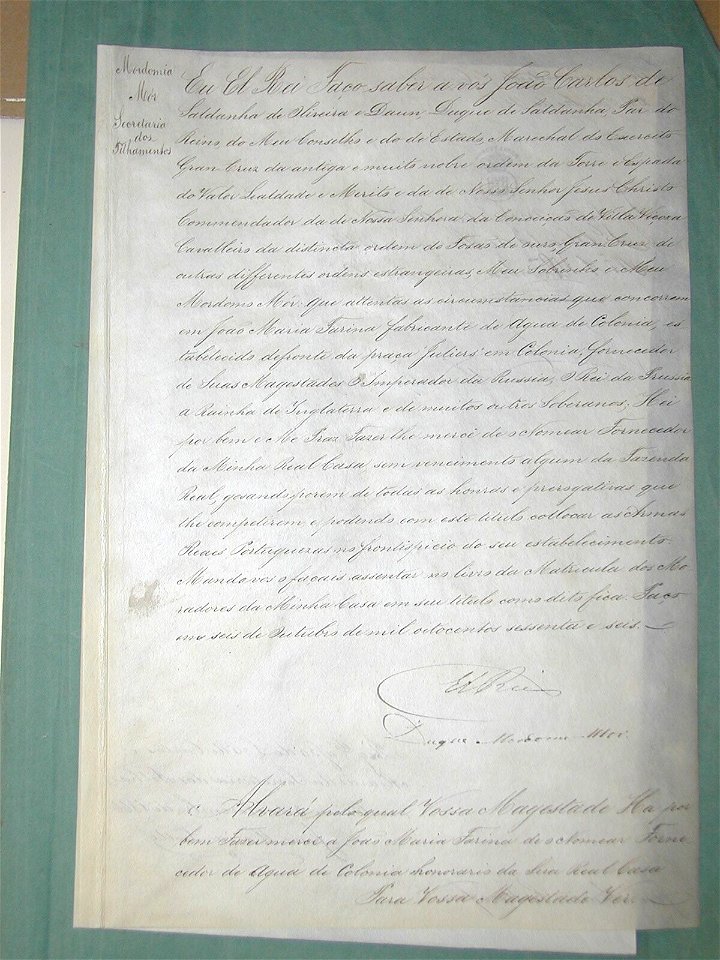 Mordomia
Mór
Secretaria
dos
Filhamentos
Eu El Rei Faço saber a vós João Carlos de
Saldanha de Oliveira e Daun Duque de Saldanha, Par do
Reino, do Meu Conselho e do de Estado, Marechal do Exercito
Gran Cruz da antiga e muito nobre ordem da Torre e Espada
do Valor Lealdade e Merito e da de Nosso Senhor Jesus Christo
Commendador da de Nossa Senhora da Conceicão de Villa Viçosa
Cavalleiro da distincta ordem do Tosão de ouro, Gran Cruz de
outras differentes ordens estrangeiras, Meu Sobrinho e Meu
Mordomo Mór: que attentas as circumstancias que concorrem
em João Maria Farina fabricante de Agua de Colonia, es
tabelecido defronte da praça Juliers em Colonia, fornecedor
de Suas Magestades O Imperador da Russia, O Rei da Prussia
a Rainha de Inglaterra e de muitos outros Soberanos; Hei
por bem e Me Praz Fazer lhe mercê de o Nomear Fornecedor
da Minha Real Casa sem vencimento algum da Fazenda
Real, gosando porem de todas as honras e prerogativas que
lhe competirem e podendo com este titulo collocar as Armas
Reaes Portuguezas no frontispicio do seu estabelecimento.
Mando vos o façais assentar no livro da Matricula dos Mo
radores da Minha Casa em seu titulo como dito fica. Paço
em seis de Outubro de mil oitocentos sessenta e seis.
El Rei
Duque Mordomo Mór
Alvará pelo qual Vossa Magestade Ha por
bem Fazer mercê a João Maria Farina de o Nomear Forne
cedor de Agua de Colonia honorario da Sua Real Casa
Para Vossa Magestade Ver.